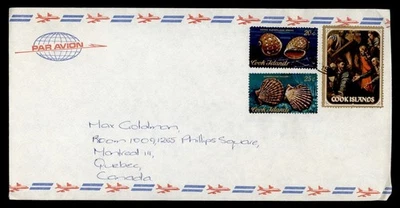 PAR AVION
20c
Cook Islands
25c
Cook Islands
COOK ISLANDS
Max Goldman,
Room 1009, 1265 Phillips Square,
Montreal 111,
Quebec,
Canada.